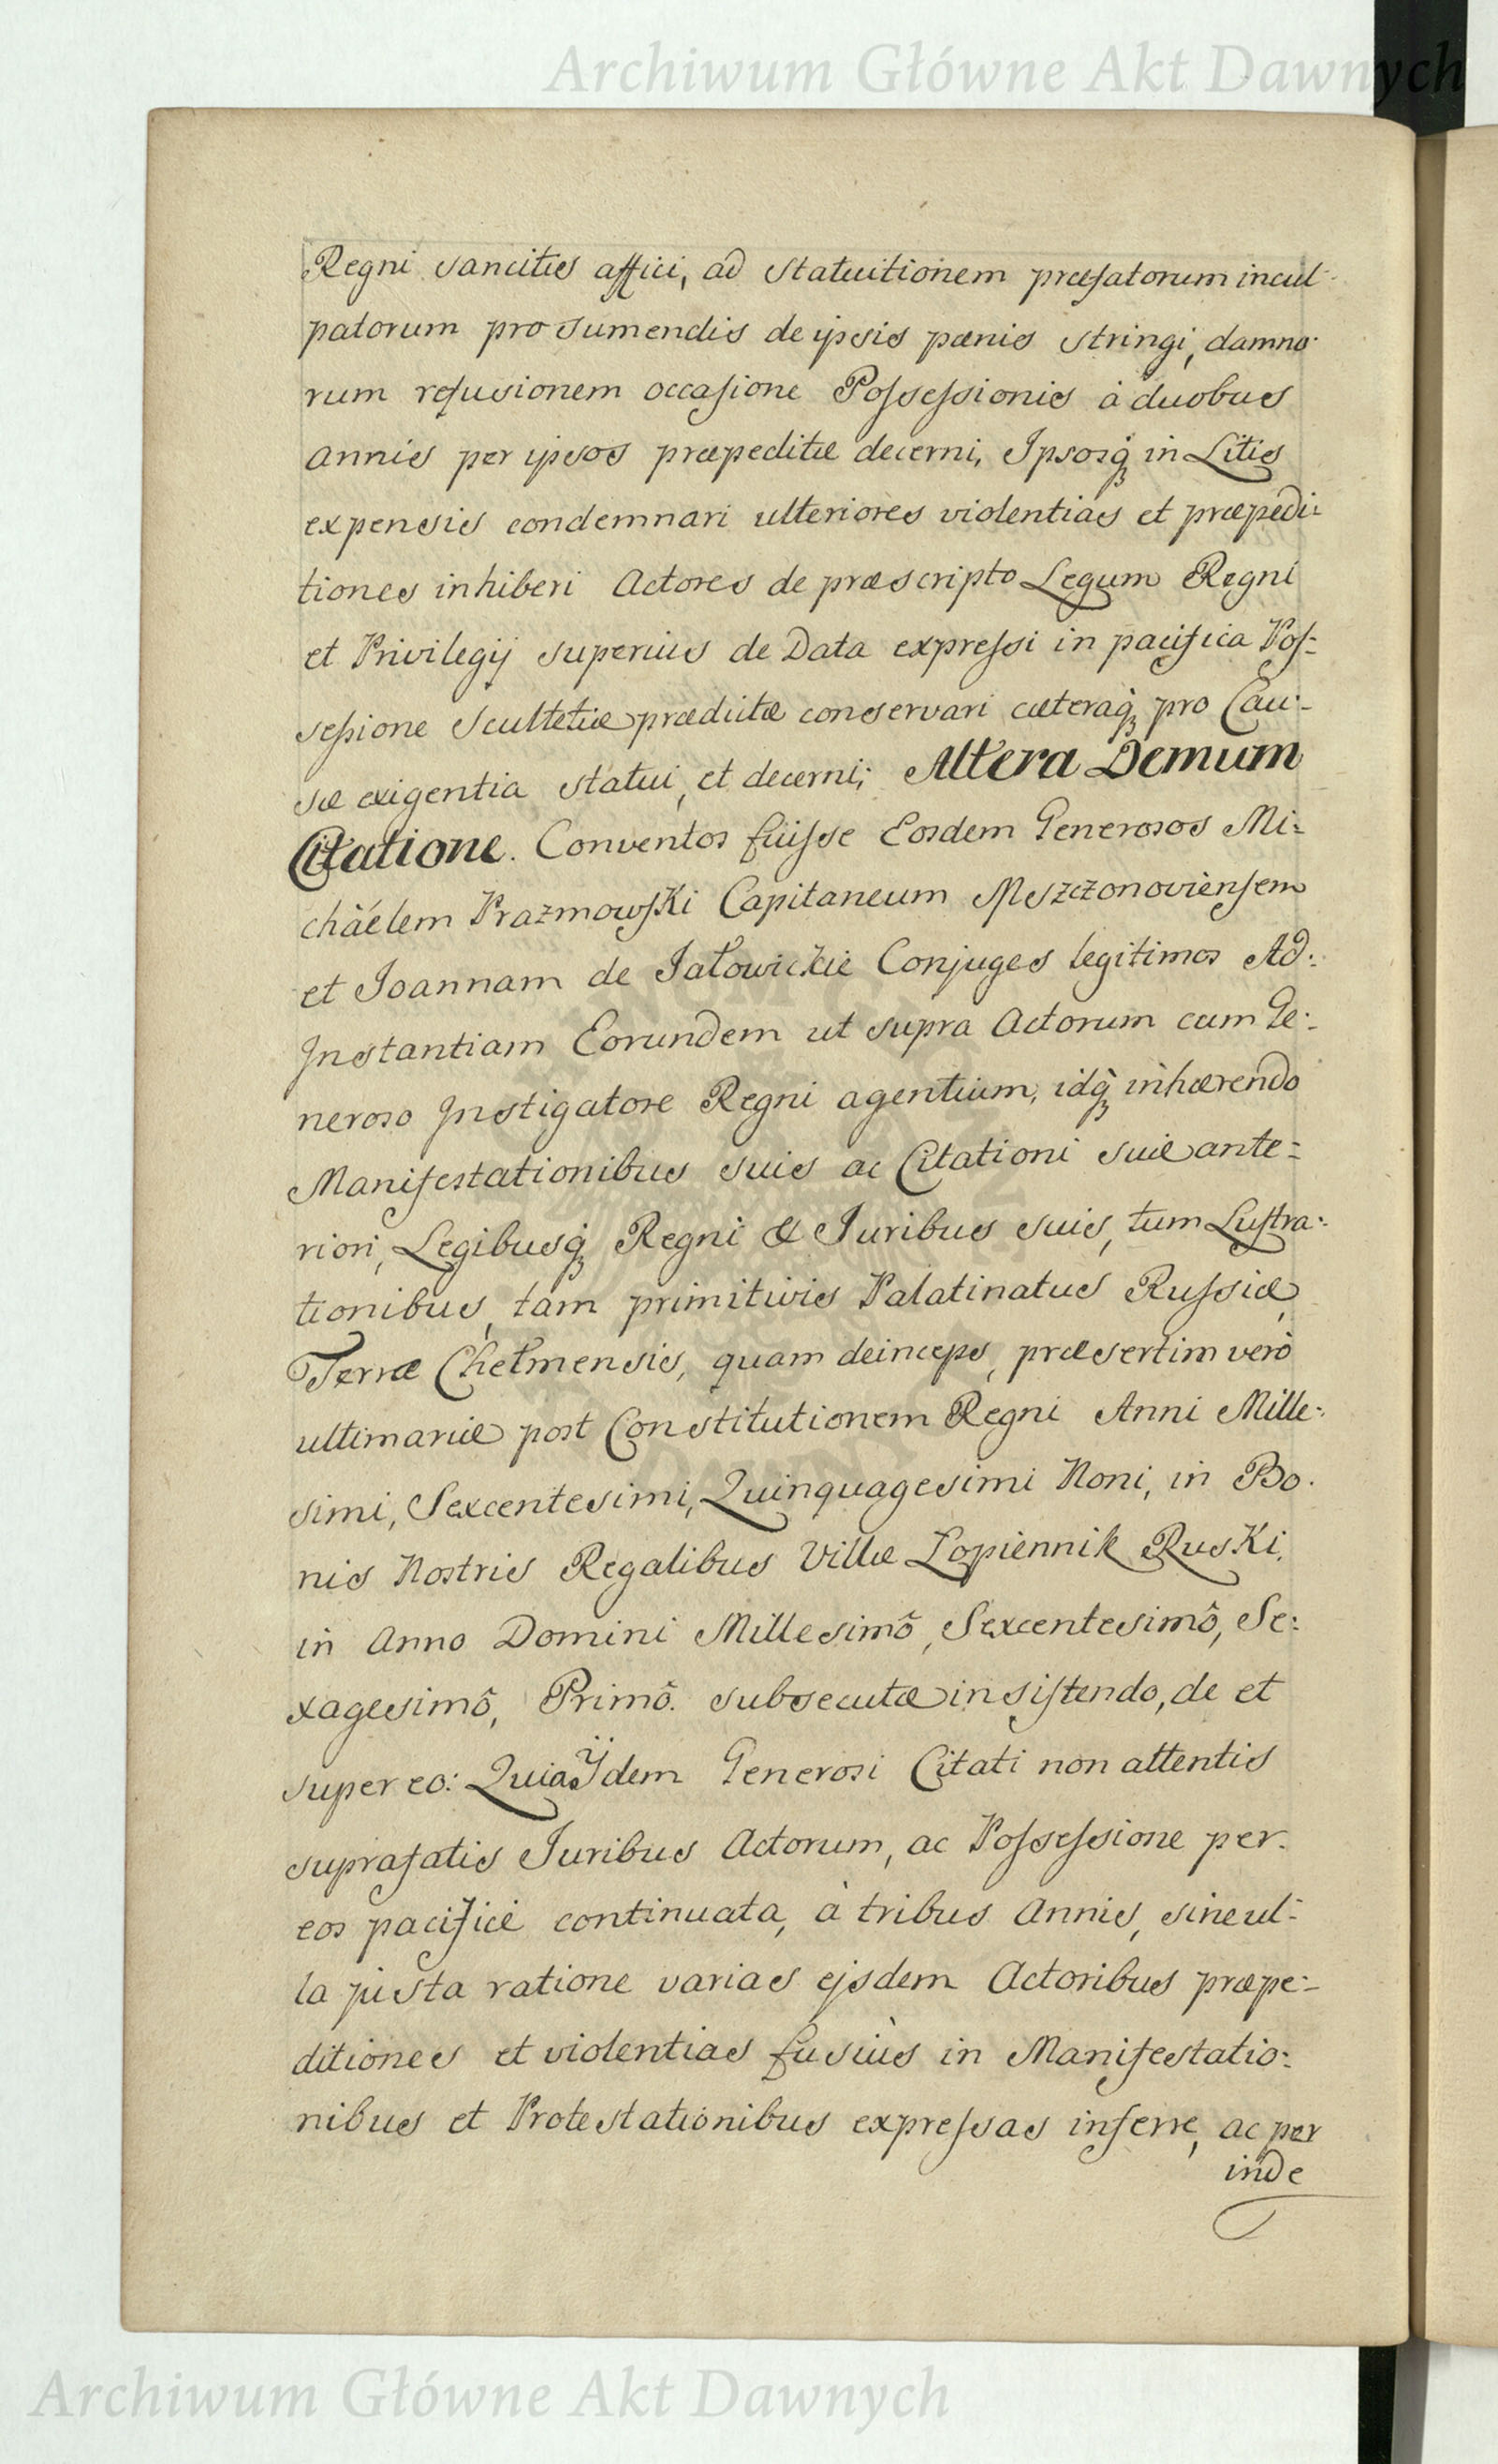 Archiwum Główne Akt Dawnych
Regni sancitis affici, ad Statuitionem præfatorum incul-
patorum pro sumendis de ipsis pænis stringi, damno-
rum refusionem occasione Possessionis à duobus
annis per ipsos præpeditæ decerni, Ipsosq́ in Litis
expensis condemnari ulteriores violentias et præpedi-
tiones inhiberi Actores de præscripto Legum Regni
et Privilegij superius de Data expressi in pacifica Pos-
sessione Scultetiæ prædictæ conservari cæteraq́ pro Cau-
sæ exigentia statui, et decerni; Altera Demum
Citatione. Conventos fuisse Eosdem Generosos Mi-
chäélem Prazmowski Capitaneum Mszczonoviensem
et Joannam de Jałowickie Conjuges legitimos Ad-
Instantiam Eorundem ut supra Actorum cum Ge-
neroso Instigatore Regni agentium, idq́ inhærendo
Manifestationibus suis ac Citationi suæ ante-
riori, Legibusq́ Regni & Juribus suis, tum Lustra-
tionibus, tam primitivis Palatinatus Russiæ,
Terræ Chełmensis, quam deinceps, præsertim verò
ultimariæ post Constitutionem Regni Anni Mille-
simi, Sexcentesimi, Quinquagesimi Noni, in Bo-
nis Nostris Regalibus Villæ Łopiennik Ruski,
in Anno Domini Millesimô, Sexcentesimô, Se-
xagesimô, Primô. subsecutæ insistendo, de et
super eo: Quia Ÿdem Generosi Citati non attentis
suprafatis Juribus Actorum, ac Possessione per
eos pacificè continuata, à tribus Annis, sine ul-
la justa ratione varias ejsdem Actoribus præpe-
ditiones et violentias fusiùs in Manifestatio-
nibus et Protestationibus expressas inferre, ac per
inde
Archiwum Główne Akt Dawnych